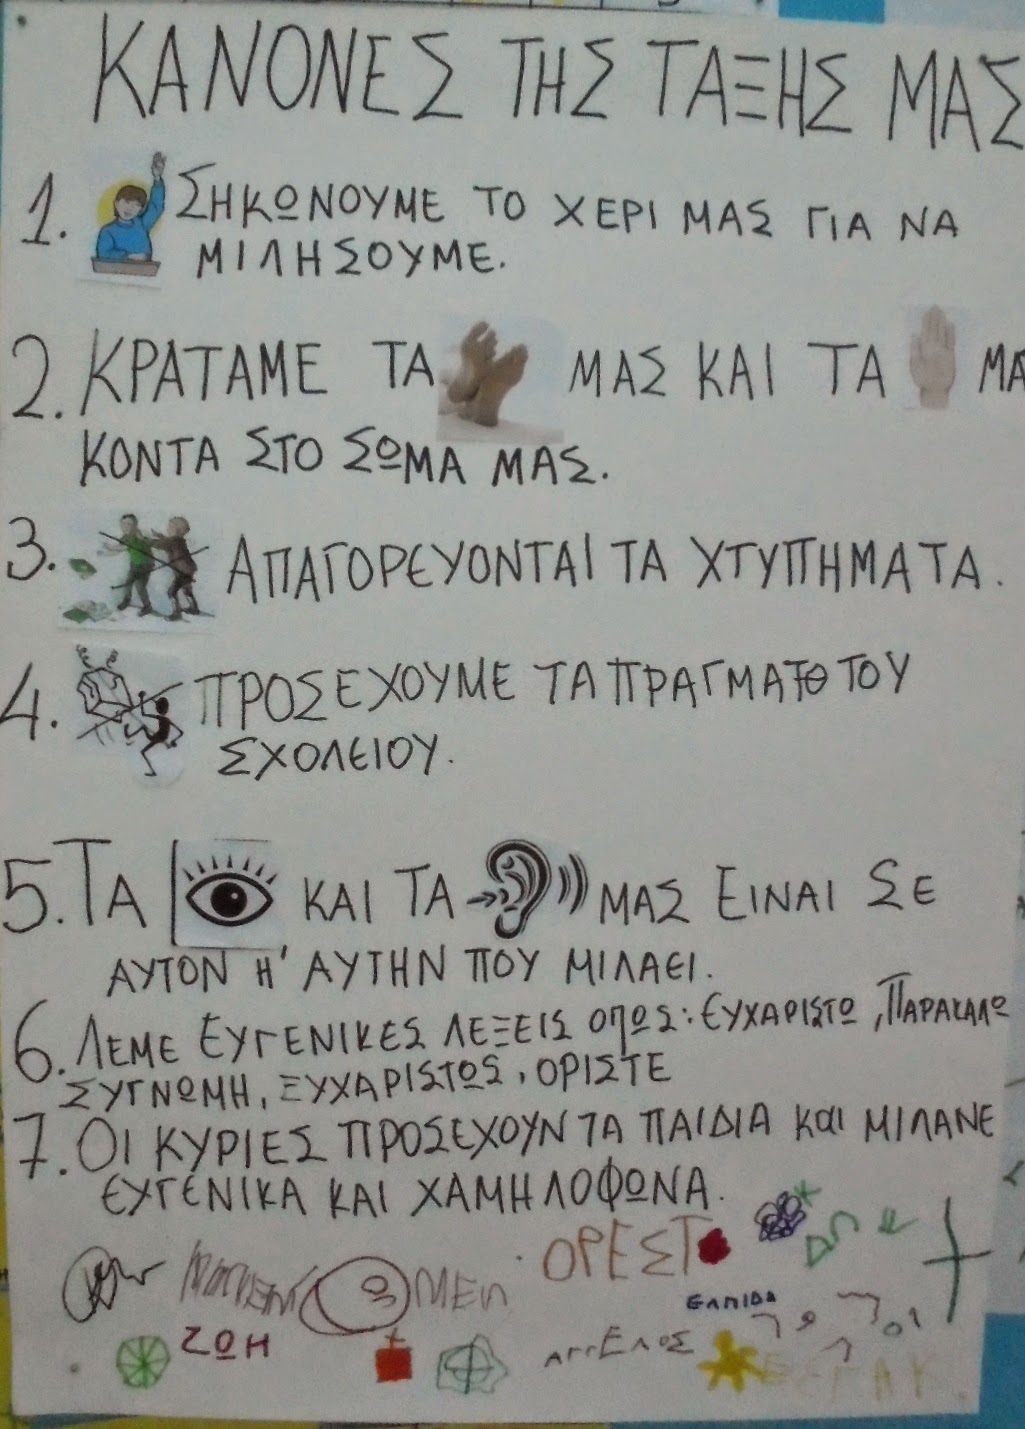 ΚΑΝΟΝΕΣ ΤΗΣ ΤΑΞΗΣ ΜΑΣ
1. ΣΗΚΩΝΟΥΜΕ ΤΟ ΧΕΡΙ ΜΑΣ ΓΙΑ ΝΑ
ΜΙΛΗΣΟΥΜΕ.
2. ΚΡΑΤΑΜΕ ΤΑ ΜΑΣ ΚΑΙ ΤΑ ΜΑ
ΚΟΝΤΑ ΣΤΟ ΣΩΜΑ ΜΑΣ.
3. ΑΠΑΓΟΡΕΥΟΝΤΑΙ ΤΑ ΧΤΥΠΗΜΑΤΑ.
4. ΠΡΟΣΕΧΟΥΜΕ ΤΑ ΠΡΑΓΜΑΤΑ ΤΟΥ
ΣΧΟΛΕΙΟΥ.
5. ΤΑ ΚΑΙ ΤΑ ΜΑΣ ΕΙΝΑΙ ΣΕ
ΑΥΤΟΝ Η' ΑΥΤΗΝ ΠΟΥ ΜΙΛΑΕΙ.
6. ΛΕΜΕ ΕΥΓΕΝΙΚΕΣ ΛΕΞΕΙΣ ΟΠΩΣ: ΕΥΧΑΡΙΣΤΩ, ΠΑΡΑΚΑΛΩ
ΣΥΓΝΩΜΗ, ΕΥΧΑΡΙΣΤΩΣ, ΟΡΙΣΤΕ
7. ΟΙ ΚΥΡΙΕΣ ΠΡΟΣΕΧΟΥΝ ΤΑ ΠΑΙΔΙΑ ΚΑΙ ΜΙΛΑΝΕ
ΕΥΓΕΝΙΚΑ ΚΑΙ ΧΑΜΗΛΟΦΩΝΑ.
ΟΡΕΣΤ
ΕΛΠΙΔΑ
ΖΩΗ
ΑΓΓΕΛΟΣ